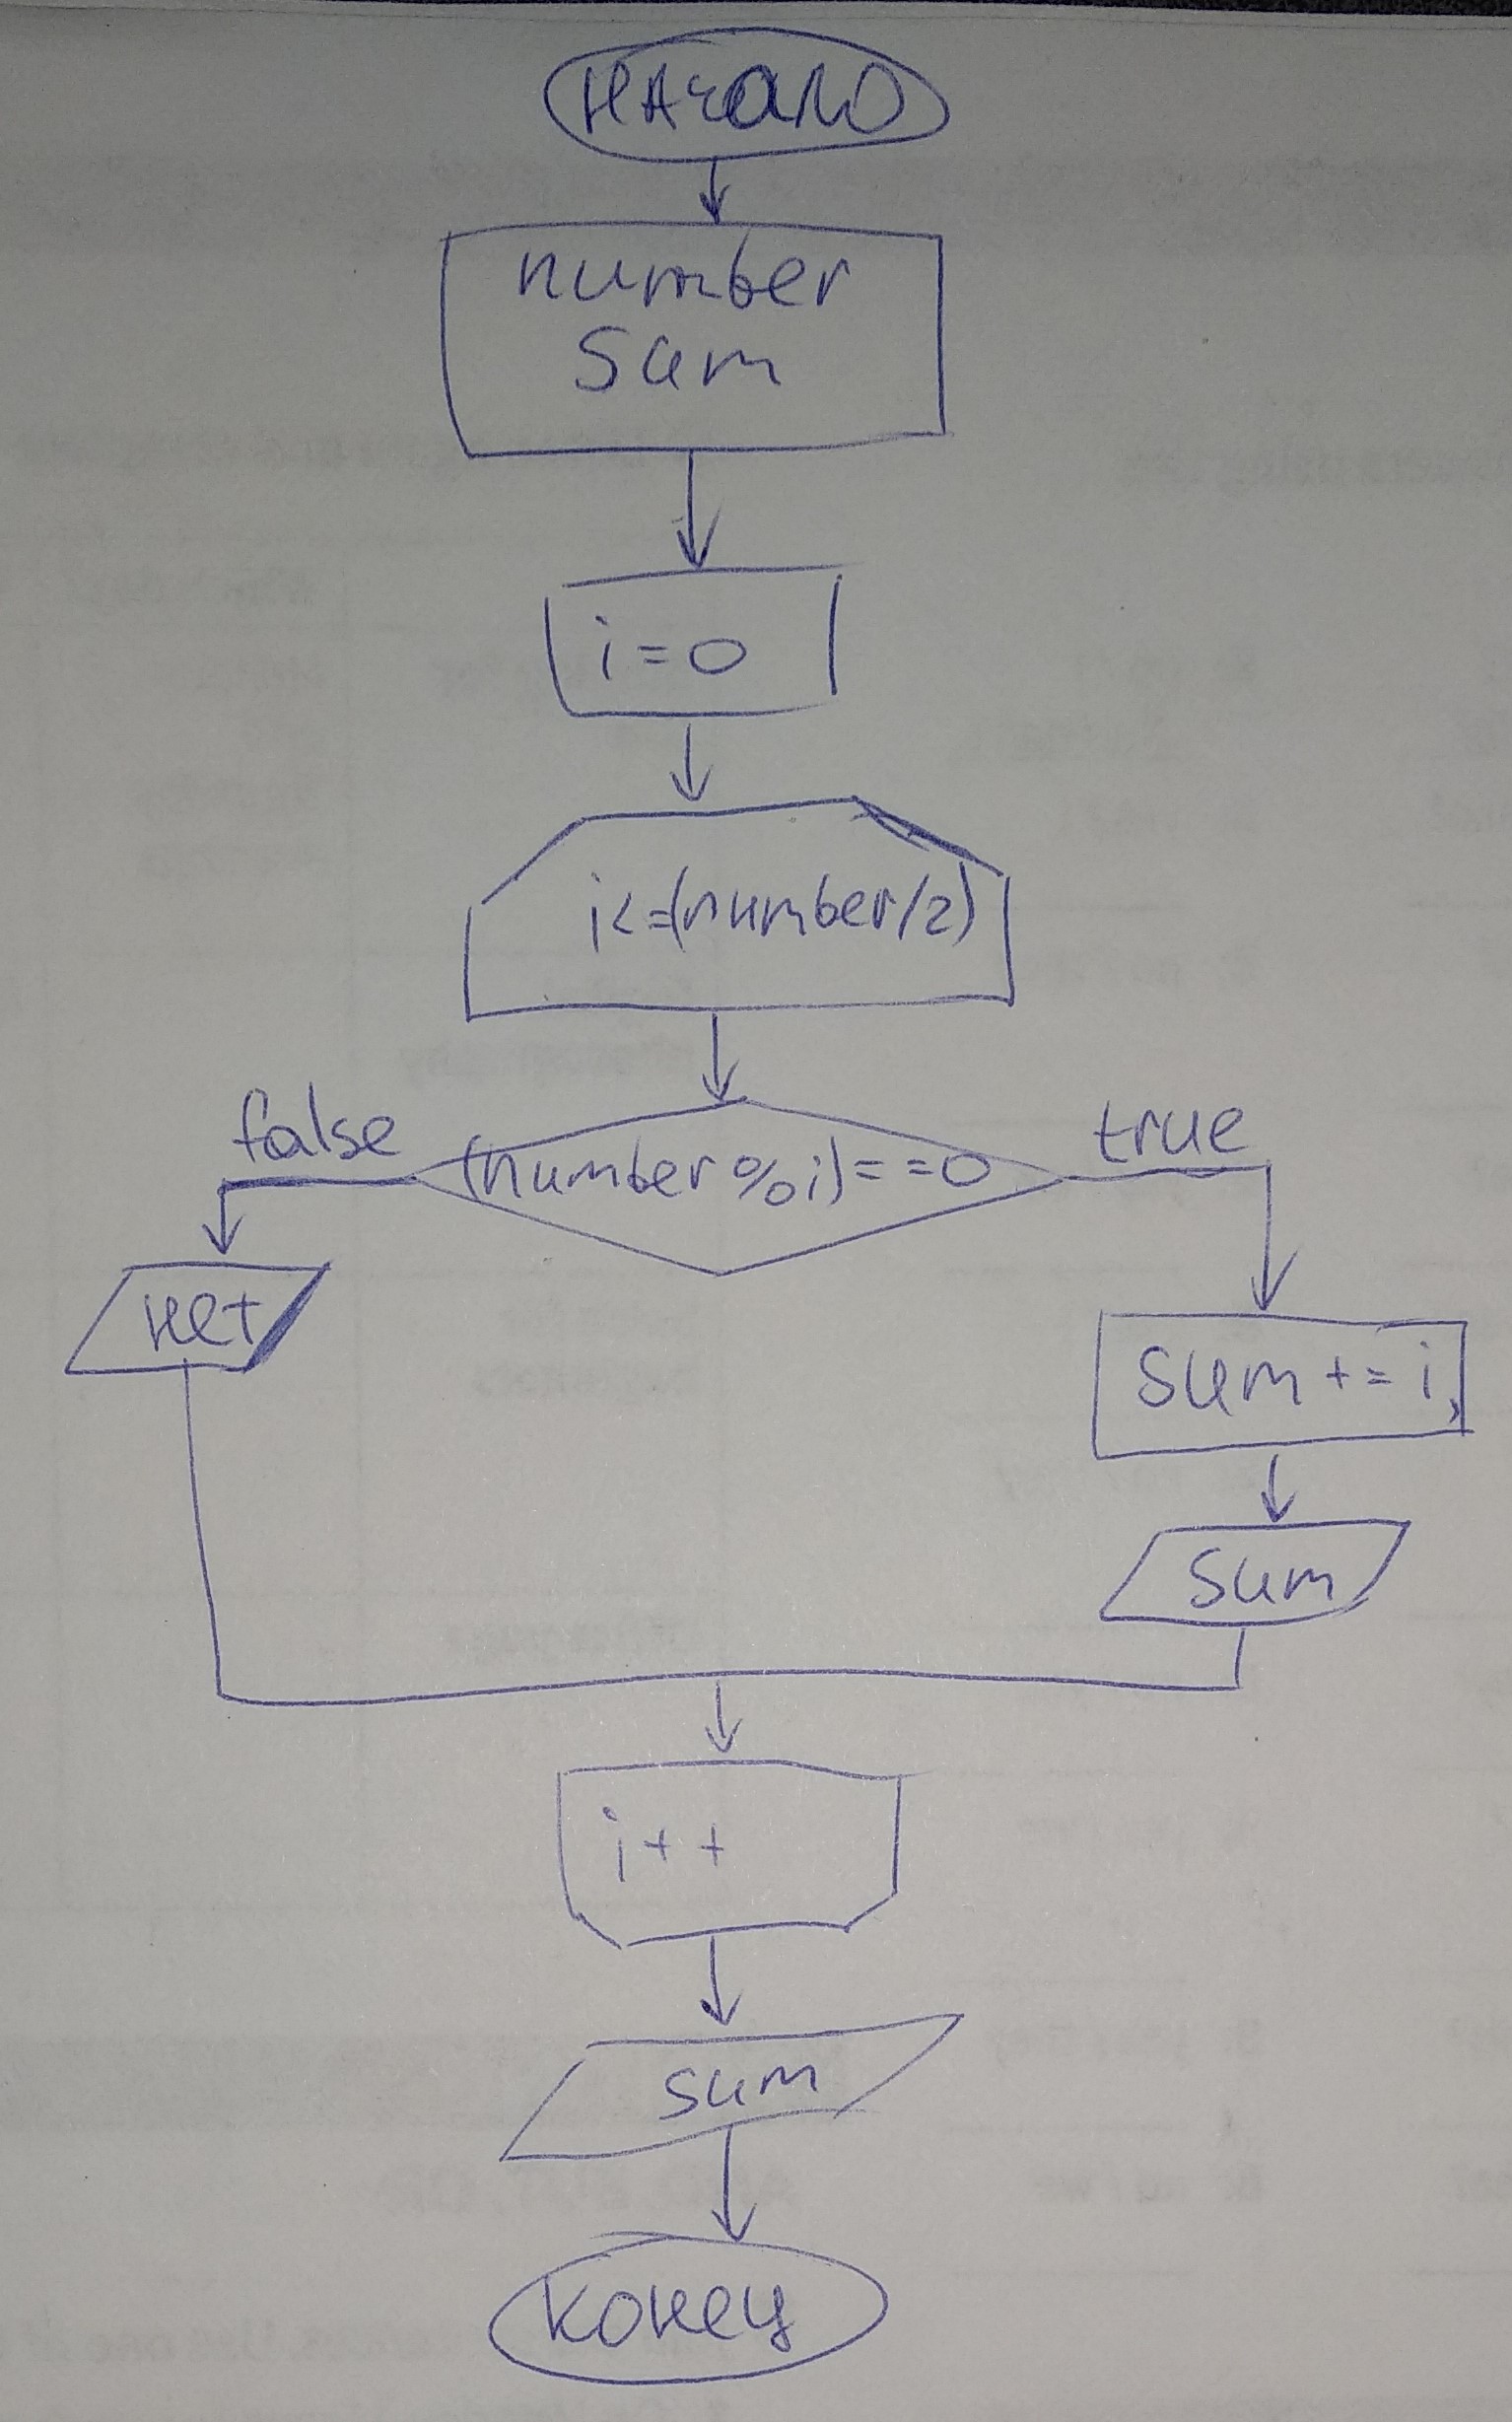 НАчало
number
Sum
i=0
i<=(number/2)
false
(number%i)==0
true
нет
Sum+=i;
Sum
i++
sum
конец